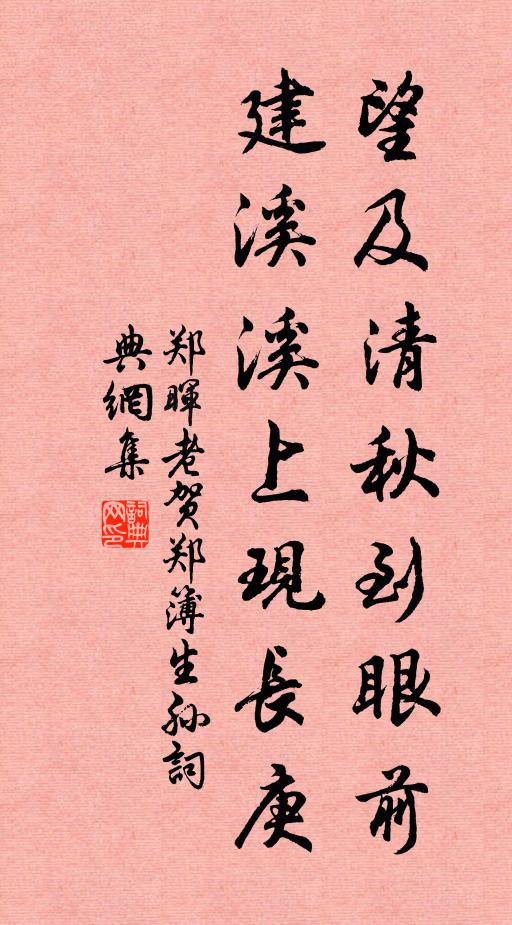 望及清秋到眼前
建溪溪上現長庚
郑暉老贺郑簿生孙詞
典網集
詞典网印